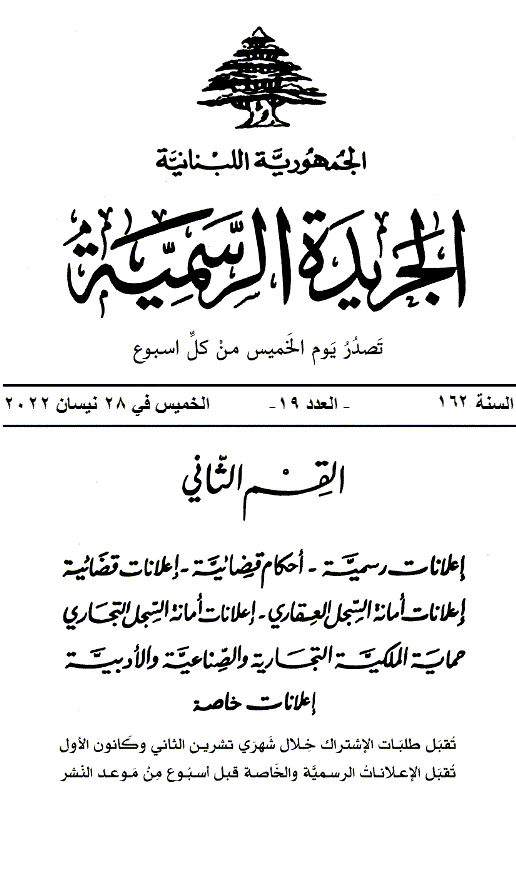 الجُمهُوريَّة اللبْنانيَّة
الجَريدَة الرسَّميَّة
تَصدُرُ يَوم الخَميس منْ كلِّ اسبوع
السنة ١٦٢ - العدد ١٩- الخميس في ٢٨ نيسان ٢٠٢٢
القِسْم الثّاني
إعلانات رسميَّة - أحكام قضائيَّة - إعلانات قضائية
إعلانات أمانة السّجل العقاري - إعلانات أمانة السّجل التجاري
حماية الملكيَّة التجارية والصِّناعيَّة والأدبيَّة
إعلانات خاصة
تُقبَل طلبَات الإشتراك خِلال شَهرَي تشرين الثاني وكَانون الأول
تُقبَل الإعلاناتُ الرسميَّة والخَاصة قَبل أسبُوع مِنْ مَوعد النَشر